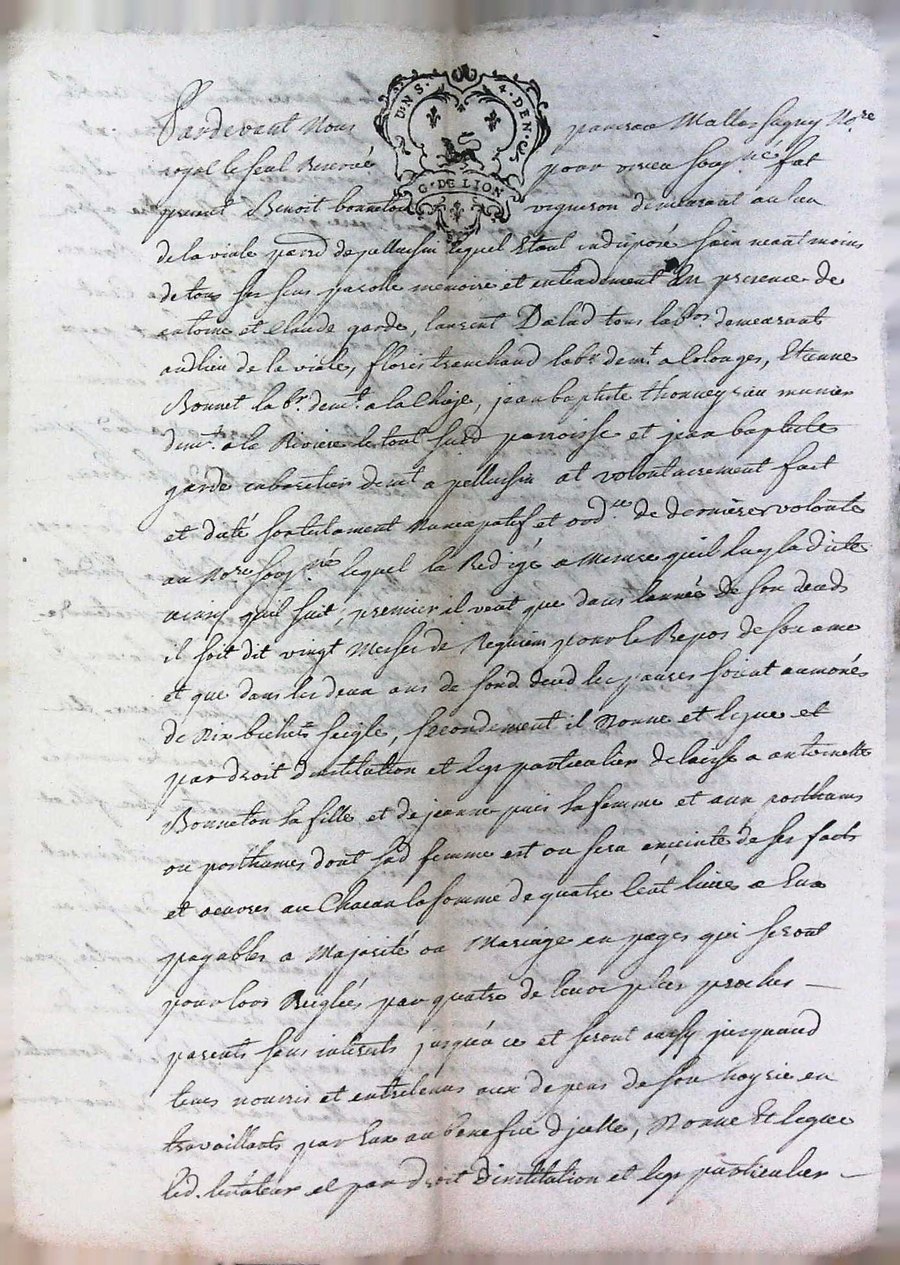 2 S. D. N S. 4. DEN. C
G. DE LION
Pardevant Nous Mallassagny No.re
royal le seul Reservé pour soug.né fut
present Benoit bonneton vigneron demeurant au lieu
de la viale parr.d de pellussin lequel Etant indisposé sain neant moins
de tous ses sens parolle memoire et entendement En presence de
antoine et Claude garde, laurent tous lab.rs demeurants
audlieu de la viale, fleuris tranchand lab.r dem.t a Colonges, Etienne
Bonnet lab.r dem.t a la Chaze, jean baptiste thonneyrieu munier
dem.t a la Riviere le tout susd parroisse et jean baptiste
garde cabaretier dem.t a pellussin at volontairement fait
et dité son testament Nuncupatif et ord.re de derniere volonté
au No.re soug.né lequel la Redigé a Mesure quil luy la dicté
ainsy quil suit, premier il veut que dans lannée de son deceds
il soit dit vingt Messes de Requiem pour le Repos de son ame
et que dans les deux ans de sond. deced les pauvres soient aumonés
de bichets seigle, secondement il Donne et legue et
par droit dinstitution et legs particulier delaisse a antoinette
Bonneton sa fille et de jeanne sa femme et aux posthumes
ou posthumes dont sad femme est ou sera enceinte de ses faits
et oeuvres au Chacun la somme de quatre Cent livres a Eux
payables a Majorité ou Mariage en payes qui seront
pour lors Reglées par quatre de leurs plus proches
parents sans interets jusques a ce et seront aussy jusquand
leurs nourris et entretenus aux depens de son hoyrie en
travaillants par Eux au benefice djcelle, Donne Et legue
led. testateur et par droit dinstitution et legs particulier